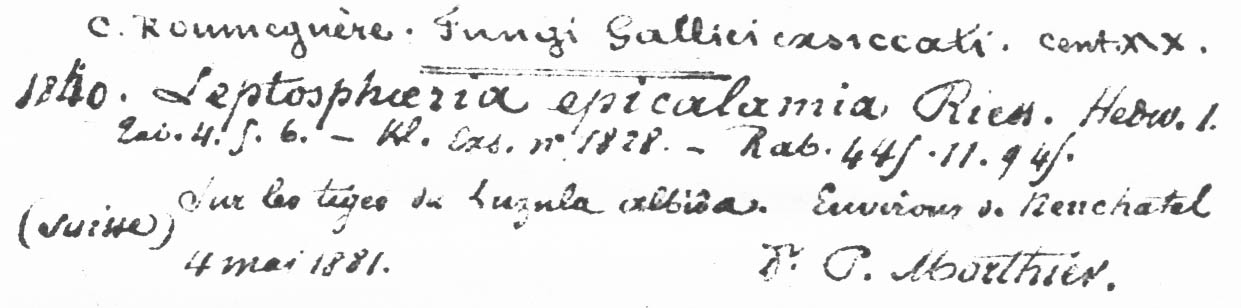 C. Roumeguère. Fungi Gallici exsiccati. Cent. XX.
1840. Leptosphæria epicalamia Riess. Hedw. 1.
Tab. 4. f. 6. – Kl. Exs. nº 1828. – Rab. 445. 11. 945.
Sur les tiges du Luzula albida. Environs de Neuchatel
(Suisse)
4 mai 1881. Dr P. Morthier.